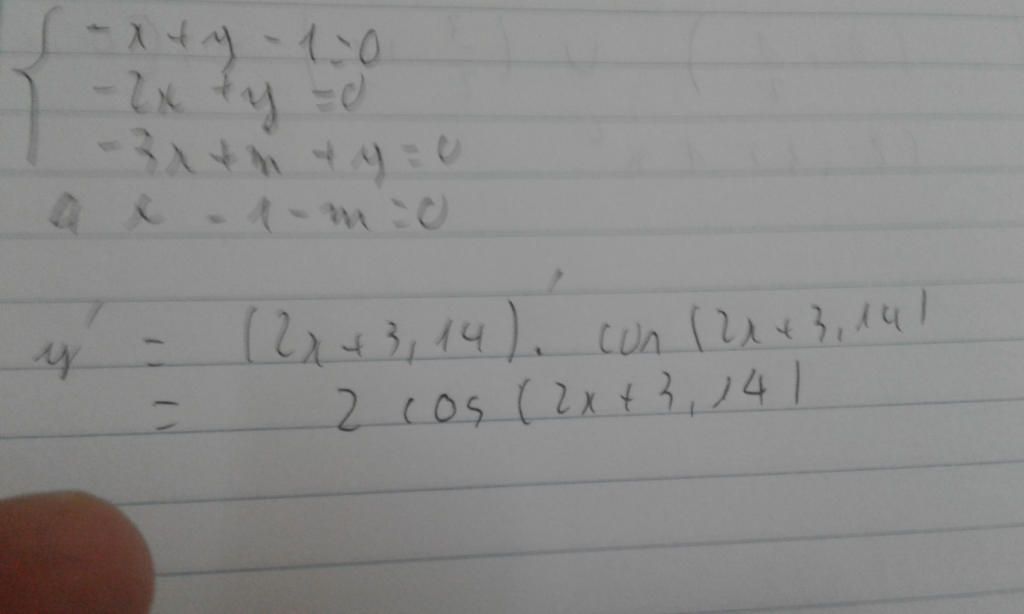 -x + y - 1 = 0
-2x + y = 0
-3x + m + y = 0
a x - 1 - m = 0
y' = (2x + 3,14)'. con (2x + 3,14)
= 2 cos (2x + 3,14)